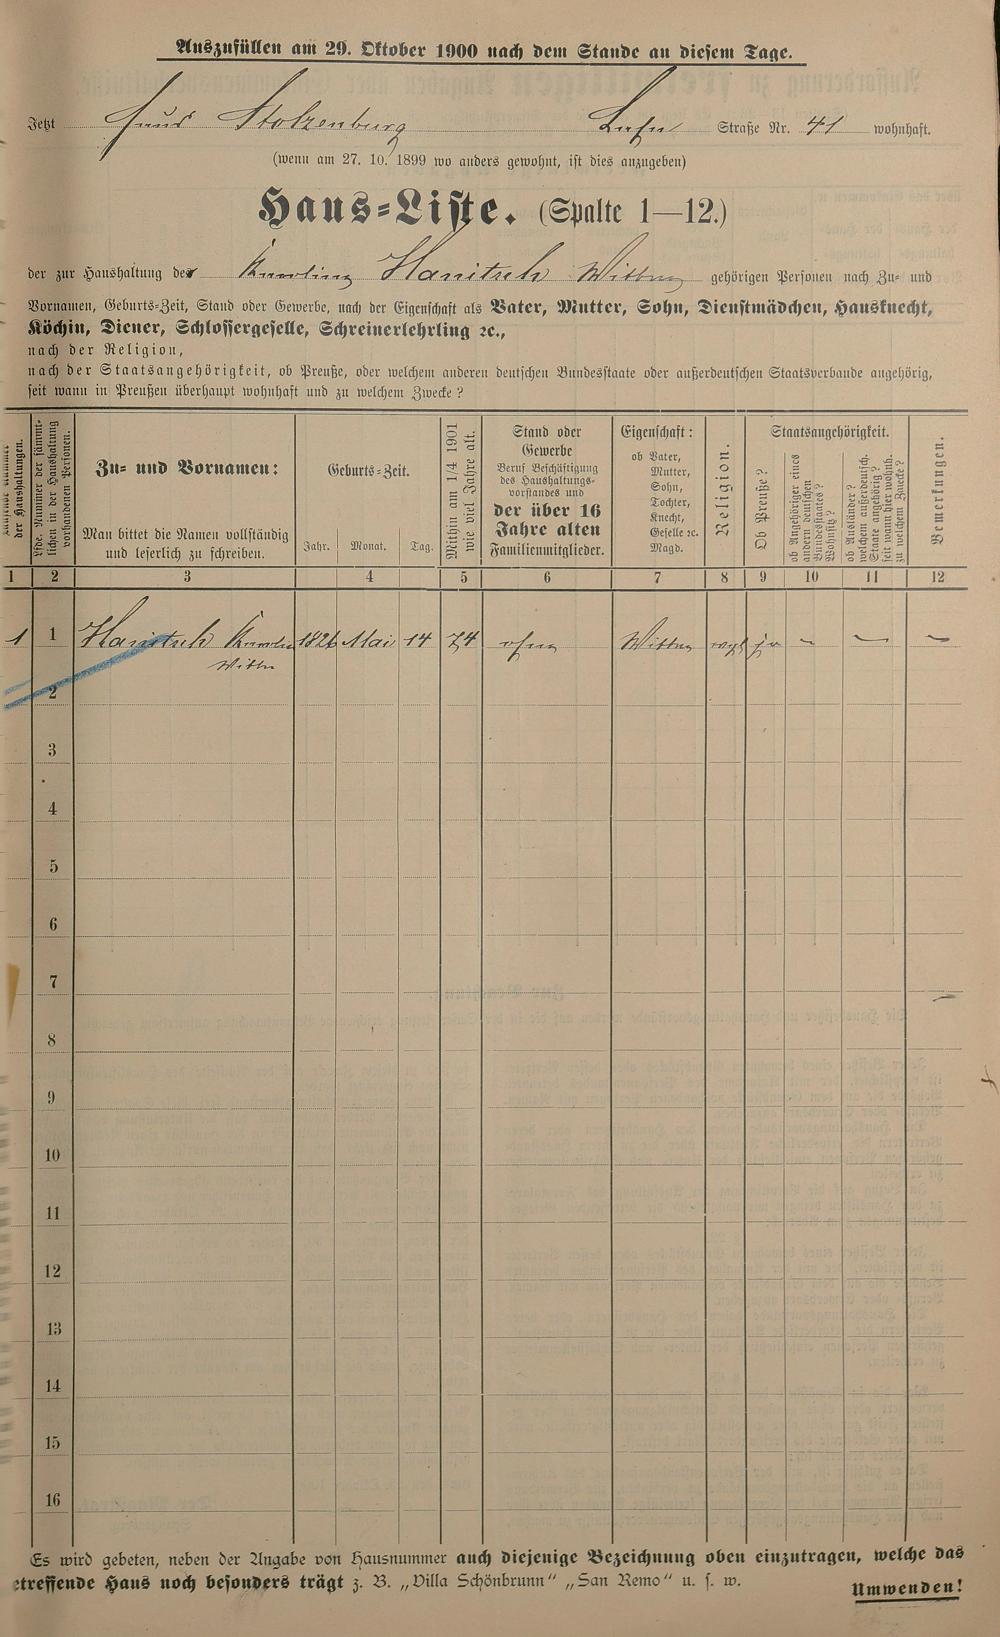 Auszufüllen am 29. Oktober 1900 nach dem Stande an diesem Tage.
Jetzt Haus Stolzenburg Lahn Straße Nr. 41 wohnhaft.
(wenn am 27. 10. 1899 wo anders gewohnt, ist dies anzugeben)
Haus=Liste. (Spalte 1—12.)
der zur Haushaltung der Karoline Hanitsch Wittwe gehörigen Personen nach Zu= und
Vornamen, Geburts=Zeit, Stand oder Gewerbe, nach der Eigenschaft als Vater, Mutter, Sohn, Dienstmädchen, Hausknecht,
Köchin, Diener, Schlossergeselle, Schreinerlehrling ꝛc.,
nach der Religion,
nach der Staatsangehörigkeit, ob Preuße, oder welchem anderen deutschen Bundesstaate oder außerdeutschen Staatsverbande angehörig,
seit wann in Preußen überhaupt wohnhaft und zu welchem Zwecke?
der Haushaltungen.
Lfde. Nummer der sämmt=
lichen in der Haushaltung
vorhandenen Personen.
Zu= und Vornamen:
Man bittet die Namen vollständig
und leserlich zu schreiben.
Geburts=Zeit.
Jahr. Monat. Tag.
Mithin am 1/4 1901
wie viel Jahre alt.
Stand oder
Gewerbe
Beruf Beschäftigung
des Haushaltungs=
vorstandes und
der über 16
Jahre alten
Familienmitglieder.
Eigenschaft:
ob Vater,
Mutter,
Sohn,
Tochter,
Knecht,
Geselle ꝛc.
Magd.
Religion.
Staatsangehörigkeit.
Ob Preuße?
ob Angehöriger eines
andern deutschen
Bundesstaates?
Wohnsitz?
ob Ausländer?
welchem außerdeutsch.
Staate angehörig?
seit wann hier wohnh.
zu welchem Zwecke?
Bemerkungen.
1 2 3 4 5 6 7 8 9 10 11 12
1 1 Hanitsch Karoline 1826 Mai 14 74 ohne Wittwe evgl ja — — —
Wittwe
2
3
4
5
6
7
8
9
10
11
12
13
14
15
16
Es wird gebeten, neben der Angabe von Hausnummer auch diejenige Bezeichnung oben einzutragen, welche das
etreffende Haus noch besonders trägt z. B. „Villa Schönbrunn" „San Remo" u. s. w.
Umwenden!